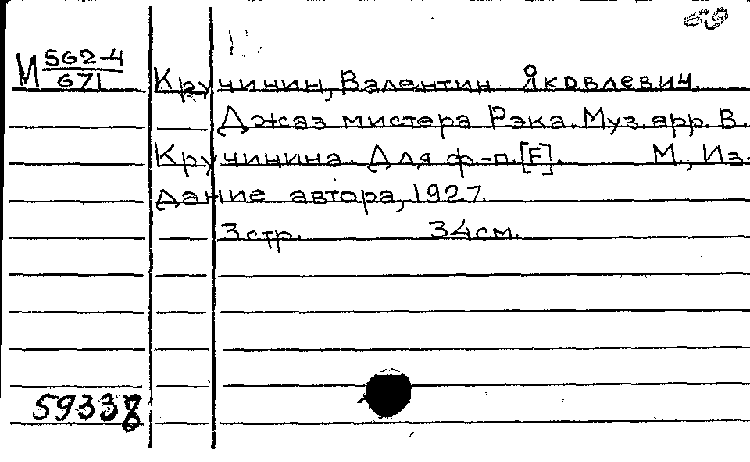 И 562-4
671
Кручинин, Валентин Яковлевич.
Джаз мистера Рэка. Муз. арр. В.
Кручинина. Для ф-п. [F]. М., Из-
дание автора, 1927.
3 стр. 34 см.
59338